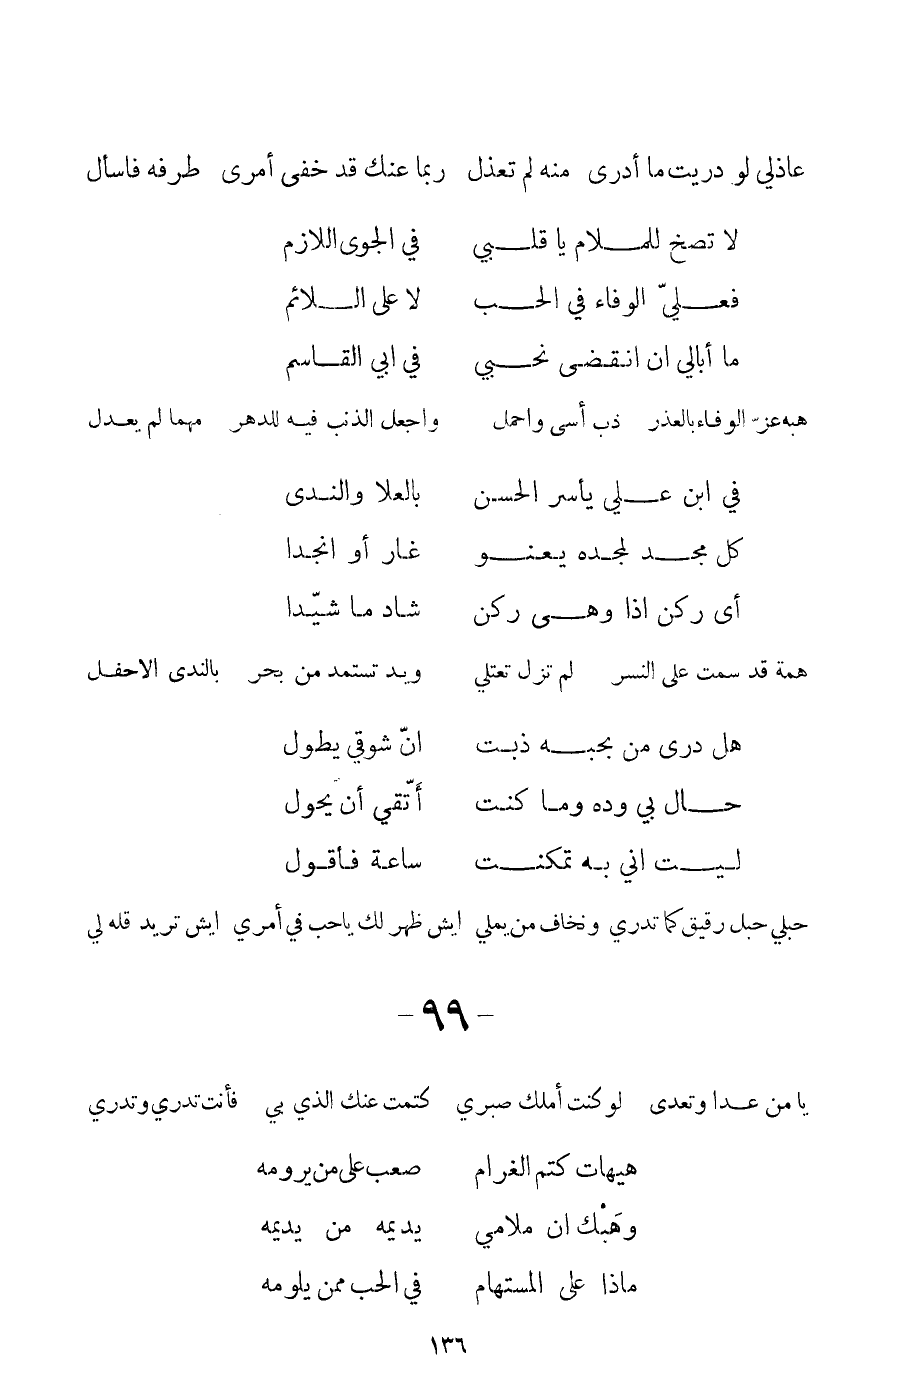 عاذلي لو دريت ما أدرى منه لم تعذل ربما عنك قد خفى أمرى طرفه فاسأل
لا تصخ للملام يا قلبي في الجوى اللازم
فعليّ الوفاء في الحب لا على اللائم
ما أبالي ان انقضى نحبي في ابي القاسم
هبه عزّ الوفاء بالعذر ذب أسى واحمل واجعل الذنب فيه للدهر مهما لم يعدل
في ابن علي يأسر الحسن بالعلا والندى
كل مجد لمجده يعنو غار أو انجدا
أى ركن اذا وهى ركن شاد ما شيّدا
همة قد سمت على النسر لم تزل تعتلي ويد تستمد من بحر بالندى الاحفل
هل درى من بحبه ذبت انّ شوقي يطول
حال بي وده وما كنت أتّقي أن يَحول
ليت اني به تمكنت ساعة فأقول
حبلي حبل رقيق كما تدري ونخاف من يملي ايش ظهر لك ياحب في أمري ايش تريد قله لي
- ٩٩ -
يا من عدا وتعدى لو كنت أملك صبري كتمت عنك الذي بي فأنت تدري وتدري
هيهات كتم الغرام صعب على من يرومه
وهَبْك ان ملامي يديمه من يديمه
ماذا على المستهام في الحب ممن يلومه
١٣٦